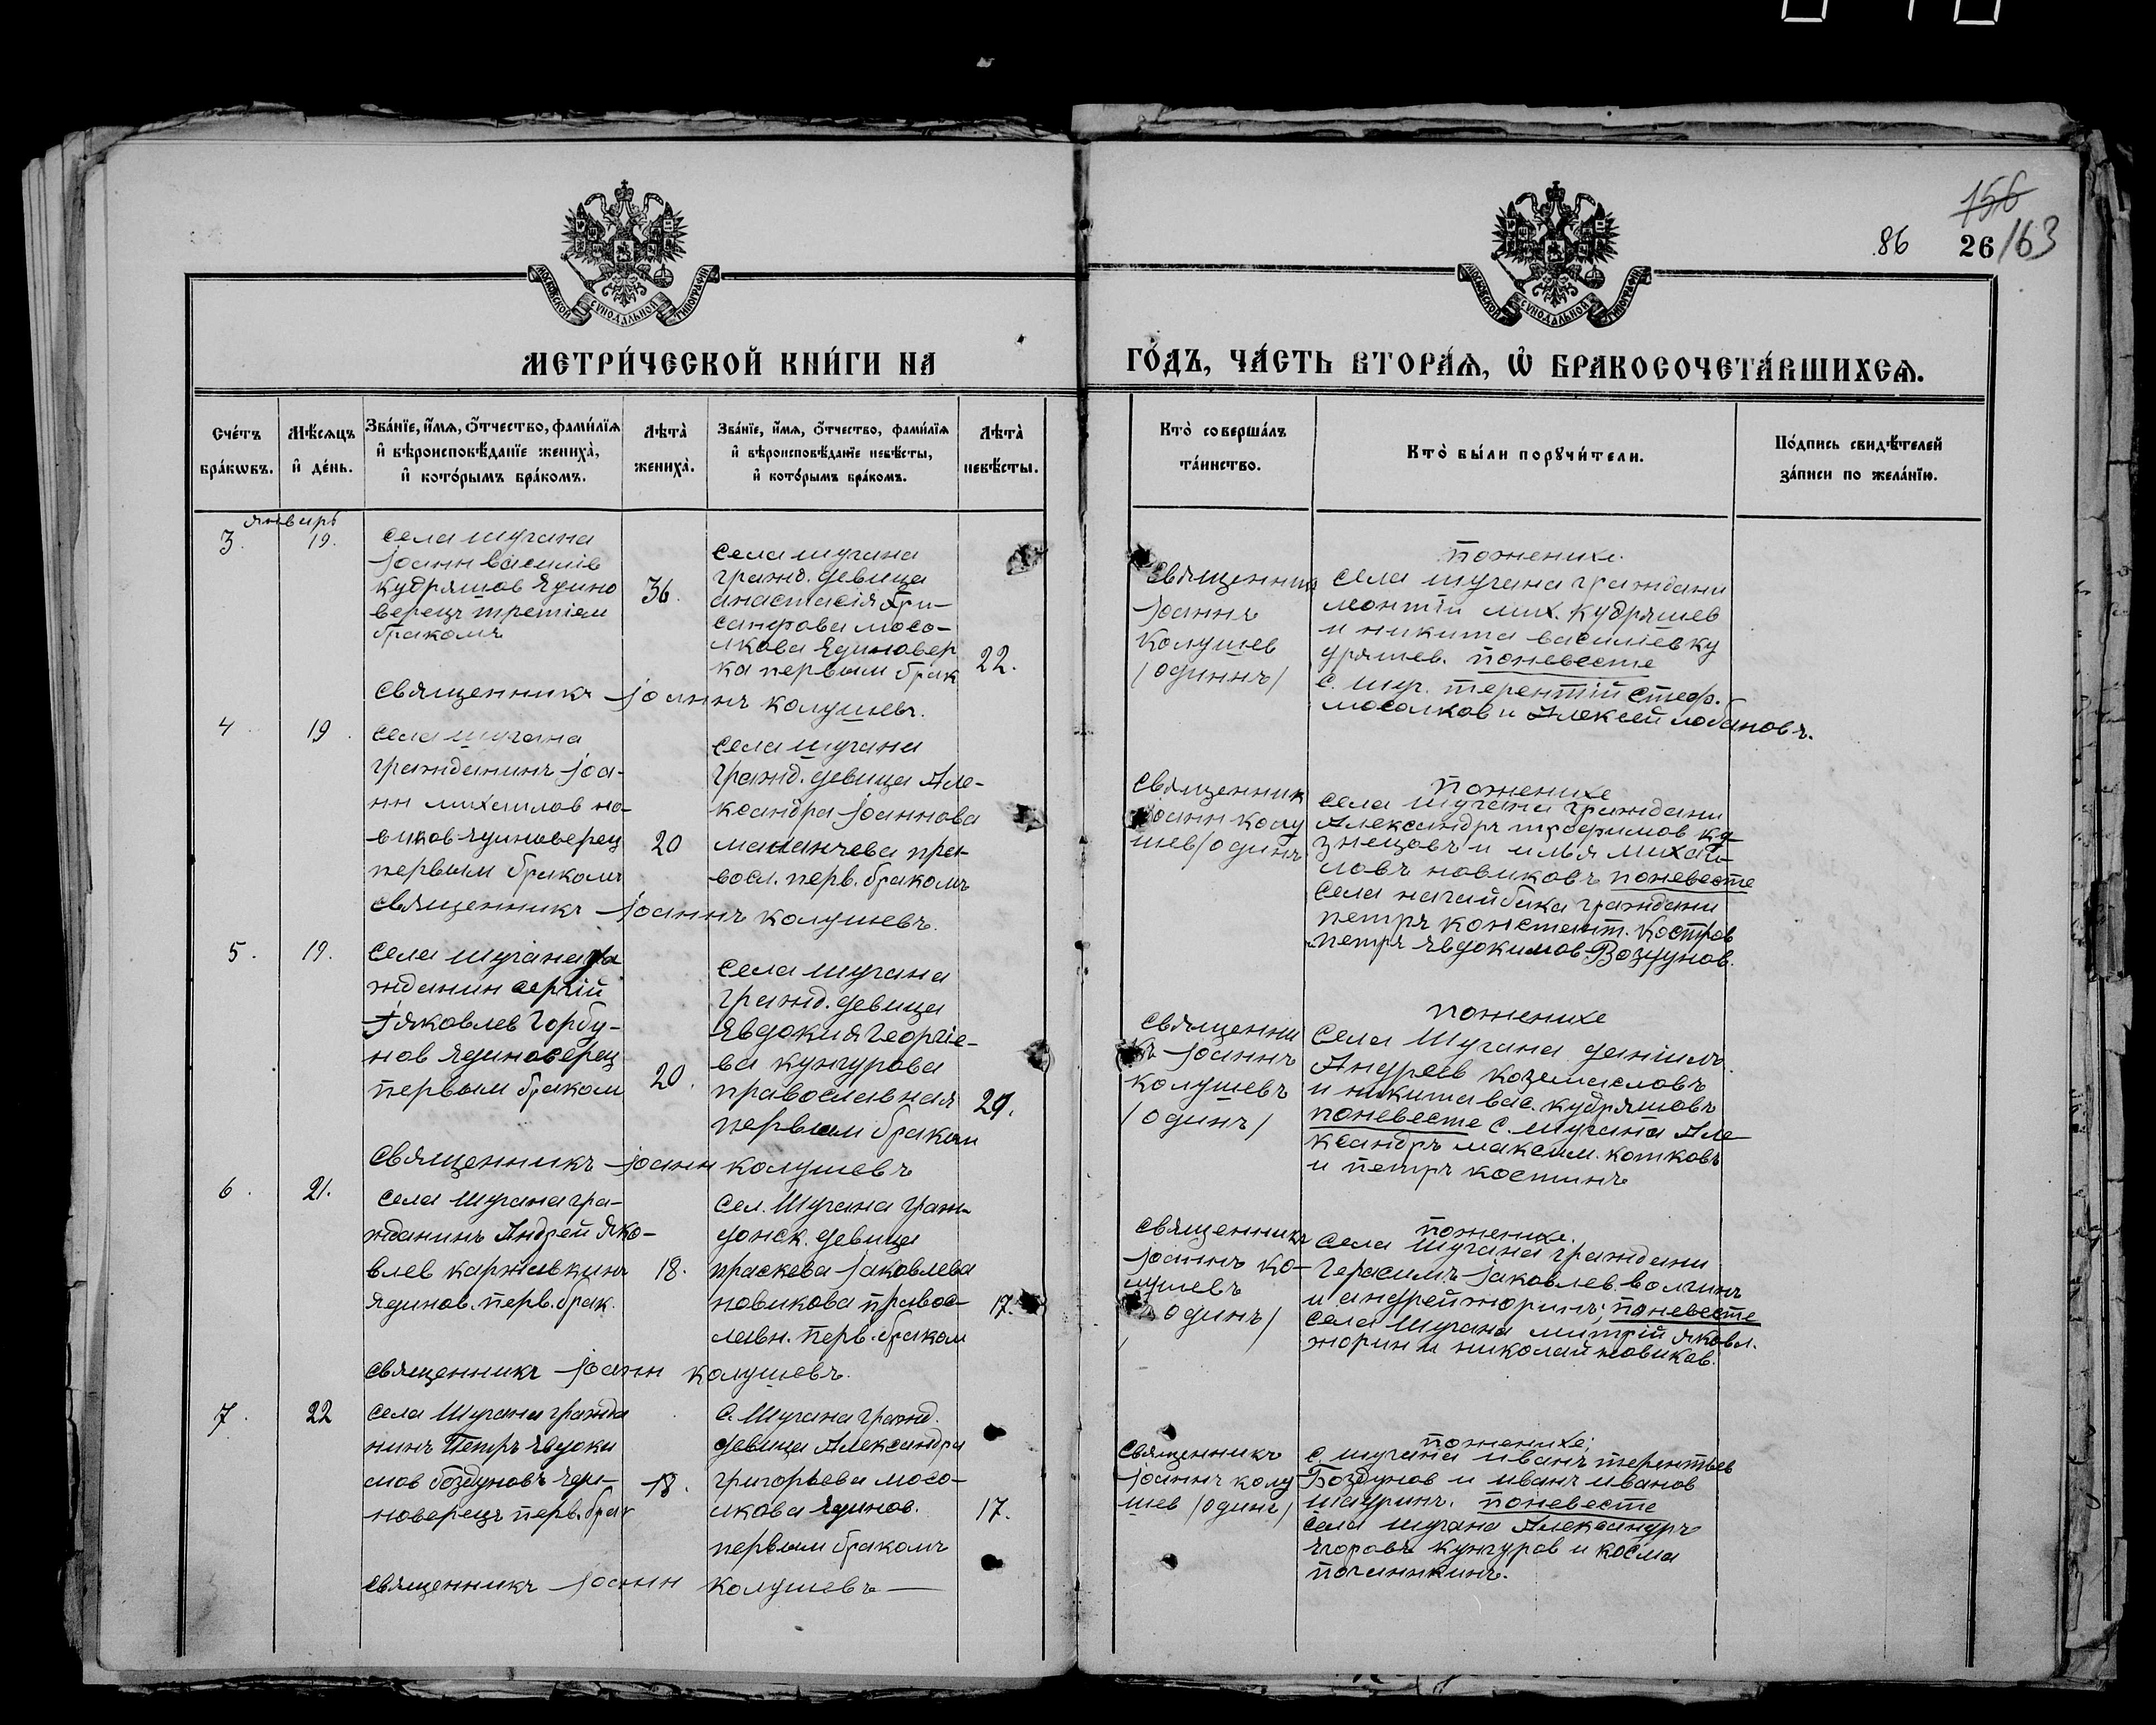 156
86
26/163
МОСКОВСКОЙ СѴНОДАЛЬНОЙ ТИПОГРАФІИ
МОСКОВСКОЙ СѴНОДАЛЬНОЙ ТИПОГРАФІИ
МЕТРИ́ЧЕСКОЙ КНИ́ГИ НА
ГО́ДЪ, ЧА́СТЬ ВТОРА́Я, Ѡ БРАКОСОЧЕТА́ВШИХСЯ.
Сче́тъ бра́кѡвъ.
Мѣ́сяцъ и де́нь.
Зва́нїе, и́мя, ѻ́тчество, фами́лїя
и вѣроисповѣ́данїе жениха̀,
и кото́рымъ бра́комъ.
Лѣта̀ жениха̀.
Зва́нїе, и́мя, ѻ́тчество, фами́лїя
и вѣроисповѣ́данїе невѣ́сты,
и кото́рымъ бра́комъ.
Лѣта̀ невѣ́сты.
Кто̀ соверша́лъ
та́инство.
Кто̀ бы́ли порꙋчи́тели.
По́дпись свидѣ́телей
за́писи по жела́нїю.
январь
3.
19.
села шугана
јоанн василів
кудряшов Едино
верецъ третіем
бракомъ
36.
села шугана
гражд. девица
анастасія Хри-
санфова мосо-
лкова Единовер
ка первым брак
22.
священникъ јоаннъ колушевъ.
священникъ
јоаннъ
колушев
/одиннъ/
пожених.
села шугана граждани
монтій мих. кудряшев
и никита василіев ку
дряшев. поневесте
с. шуг. терентій стеф.
мосолков и Алексей лобановъ.
4
19.
села шугана
гражданинъ јоа-
нн михаилов но-
виков единоверец
первым бракомъ
20
села шугана
гражд. девица Але-
ксандра јоаннова
маланчева пра-
восл. перв. бракомъ
священникъ јоаннъ колушевъ.
священник
јоанн колу
шев/одинъ
пожених
села шугана граждани
Александръ трофимов ку-
знецовъ и илья михай-
ловъ новиковъ поневесте
села нагайбака граждани
петръ констант. костров
петръ евдокимов Воздунов.
5.
19.
села шугана гра
жданин сергій
Яковлев Горбу-
нов единоверец
первым браком
20.
села шугана
гражд. девица
Евдокия георгіе-
ва кунгурова
православная
первым браком
29.
священникъ јоанн колушевъ
священни
къ јоаннъ
колушевъ
/одинъ/
пожених
села Шугана даніилъ
Андреев коземасловъ
и никита вас. кудряшовъ
поневесте с. шугана Але-
ксандръ максим. котковъ
и петръ костинъ
6.
21.
села Шугана гра-
жданинъ Андрей Яко-
влев каржавкинъ
единов. перв. брак.
18.
сел. Шугана граж-
данск. девица
праскева јаковлева
новикова правос-
лавн. перв. браком
17.
священникъ јоанн колушевъ.
священникъ
јоаннъ ко-
лушевъ
/одинъ/
пожених.
села Шугана граждани
герасимъ јаковлев. волчинъ
и андрей жоринъ; поневесте
села Шугана митрій яковл.
жорин и николай новиков.
7.
22
села Шугана гражда
нинъ Петръ Евдоки
мов боздуновъ еди-
новерецъ перв. брак
18.
с. Шугана гражд.
девица Александра
григорьева мосо-
лкова единов.
первым бракомъ
17.
священникъ јоанн колушевъ
священникъ
јоаннъ колу
шев /одинъ/
пожених;
с. шугана иванъ терентьев
Боздунов и иванъ иванов
шадринъ. поневесте
села шугана Александръ
Егоровъ кунгуров и косма
починкинъ.